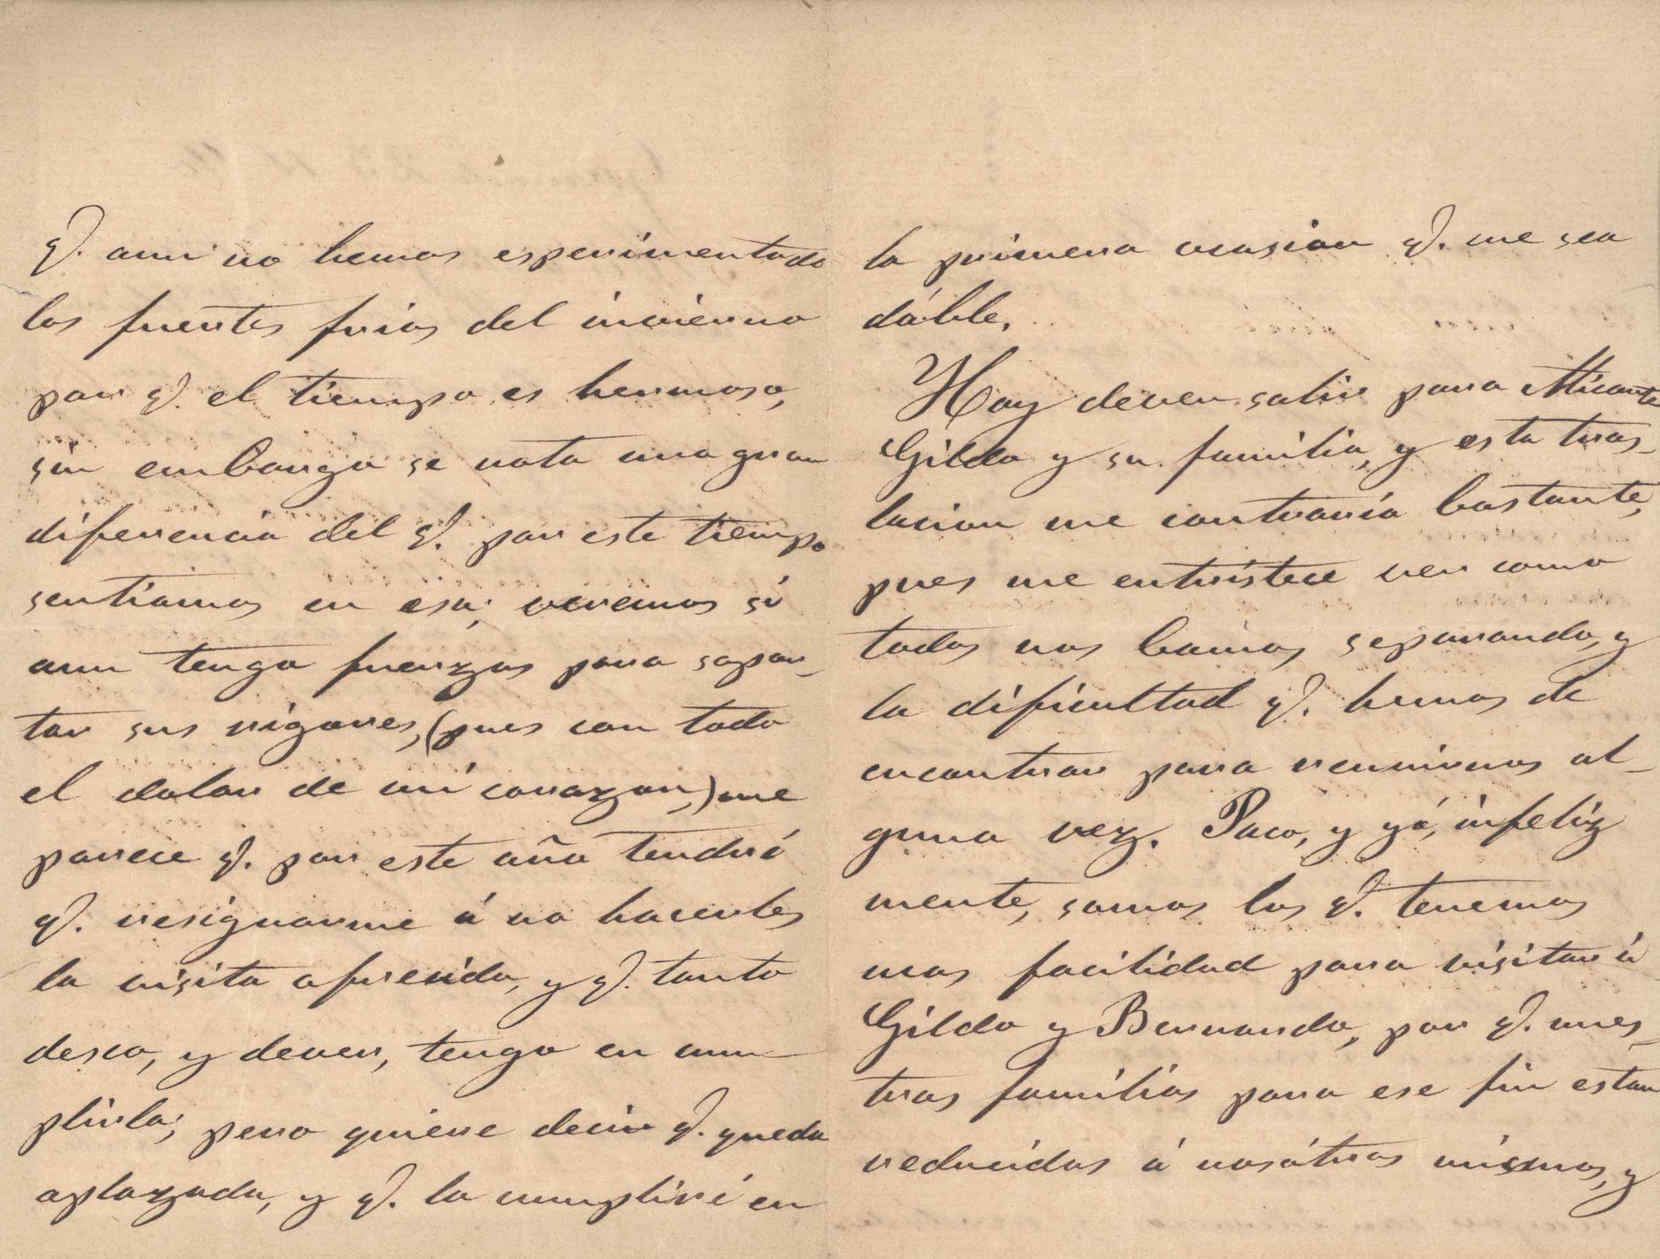 q. aun no hemos esperimentado
los fuertes frios del invierno
por q. el tiempo es hermoso,
sin embargo se nota una gran
diferencia del q. por este tiempo
sentiamos en esa; veremos si
aun tengo fuerzas para sopor-
tar sus rigores, (pues con todo
el dolor de mi corazon,) me
parece q. por este año tendré
q. resignarme á no hacerles
la visita ofresida, y q. tanto
deseo, y dever, tengo en cum-
plirla; pero quiere decir q. queda
aplazada, y q. la cumpliré en
la primera ocasion q. me sea
dáble.
Hoy deven salir para Alicante
Gildo y su familia, y esta tras-
lacion me contraría bastante,
pues me entristece ver como
todos nos bamos separando, y
la dificultad q. hemos de
encontrar para reunirnos al-
guna vez. Paco, y yó, infeliz
mente, somos los q. tenemos
mas facilidad para visitar á
Gildo y Bernardo, por q. nues-
tras familias para ese fin estan
reducidas á nosótros mismos, y